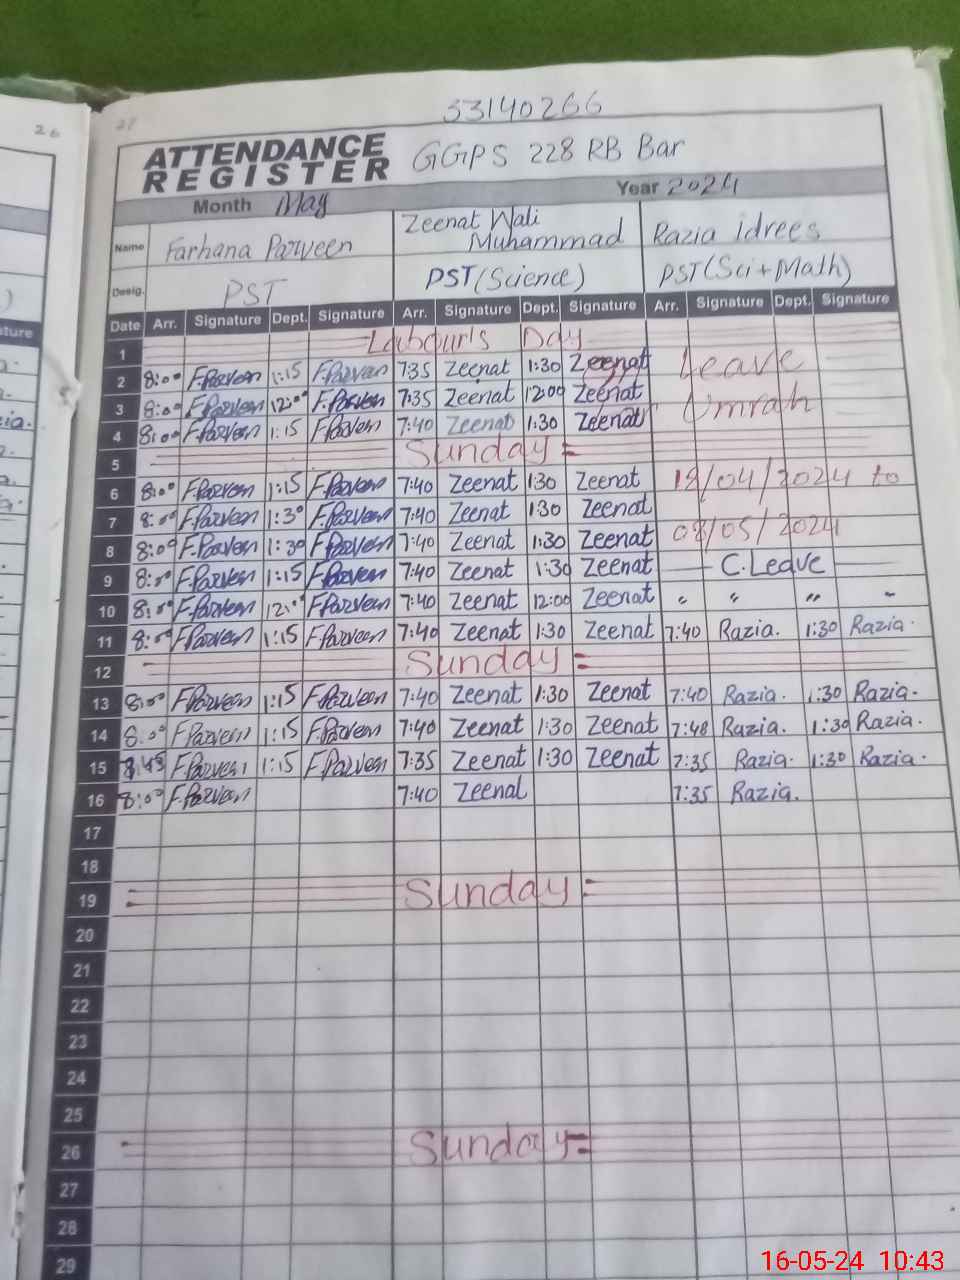 26
27
33140266
ATTENDANCE REGISTER GGPS 228 RB Bar
Month May Year 2024
Name Farhana Parveen Zeenat Wali Muhammad Razia idrees
Desig. PST PST (Science) PST (Sci+Math)
Date Arr. Signature Dept. Signature Arr. Signature Dept. Signature Arr. Signature Dept. Signature
1 Labour's Day
2 8:00 F.Parveen 1:15 F.Parveen 7:35 Zeenat 1:30 Zeenat Leave
3 8:00 F.Parveen 12:00 F.Parveen 7:35 Zeenat 12:00 Zeenat Umrah
4 8:00 F.Parveen 1:15 F.Parveen 7:40 Zeenat 1:30 Zeenat
5 Sunday =
6 8:00 F.Parveen 1:15 F.Parveen 7:40 Zeenat 1:30 Zeenat 18/04/2024 to
7 8:00 F.Parveen 1:30 F.Parveen 7:40 Zeenat 1:30 Zeenat
8 8:00 F.Parveen 1:30 F.Parveen 7:40 Zeenat 1:30 Zeenat 08/05/2024
9 8:00 F.Parveen 1:15 F.Parveen 7:40 Zeenat 1:30 Zeenat — C.Leave —
10 8:00 F.Parveen 12:00 F.Parveen 7:40 Zeenat 12:00 Zeenat " " " "
11 8:00 F.Parveen 1:15 F.Parveen 7:40 Zeenat 1:30 Zeenat 7:40 Razia. 1:30 Razia.
12 Sunday =
13 8:00 F.Parveen 1:15 F.Parveen 7:40 Zeenat 1:30 Zeenat 7:40 Razia. 1:30 Razia.
14 8:00 F.Parveen 1:15 F.Parveen 7:40 Zeenat 1:30 Zeenat 7:48 Razia. 1:30 Razia.
15 F.Parveen 1:15 F.Parveen 7:35 Zeenat 1:30 Zeenat 7:35 Razia. 1:30 Razia.
16 8:00 F.Parveen 7:40 Zeenat 7:35 Razia.
17
18
19 = Sunday =
20
21
22
23
24
25
26 Sunday =
27
28
29
16-05-24 10:43